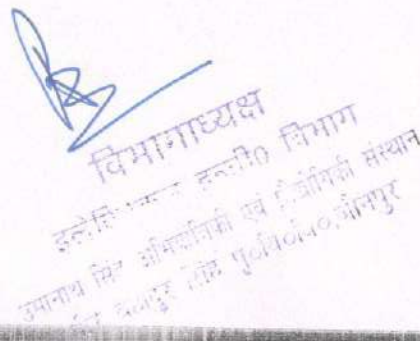 विभागाध्यक्ष
इन्जी0 विभाग
उमानाथ सिंह अभियांत्रिकी एवं प्रौद्योगिकी संस्थान
सिंह पू०वि०वि०, जौनपुर